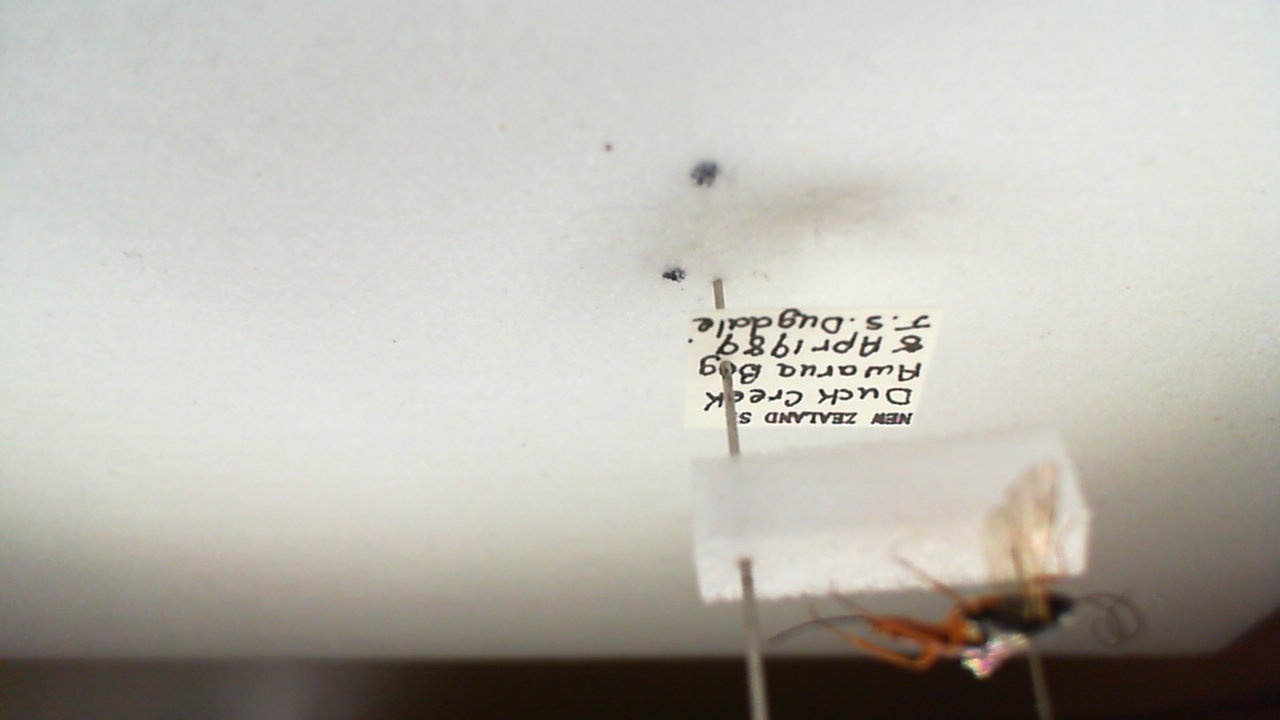 NEW ZEALAND S
Duck Creek
Awarua Bog
8 Apr 1989.
J.S. Dugdale